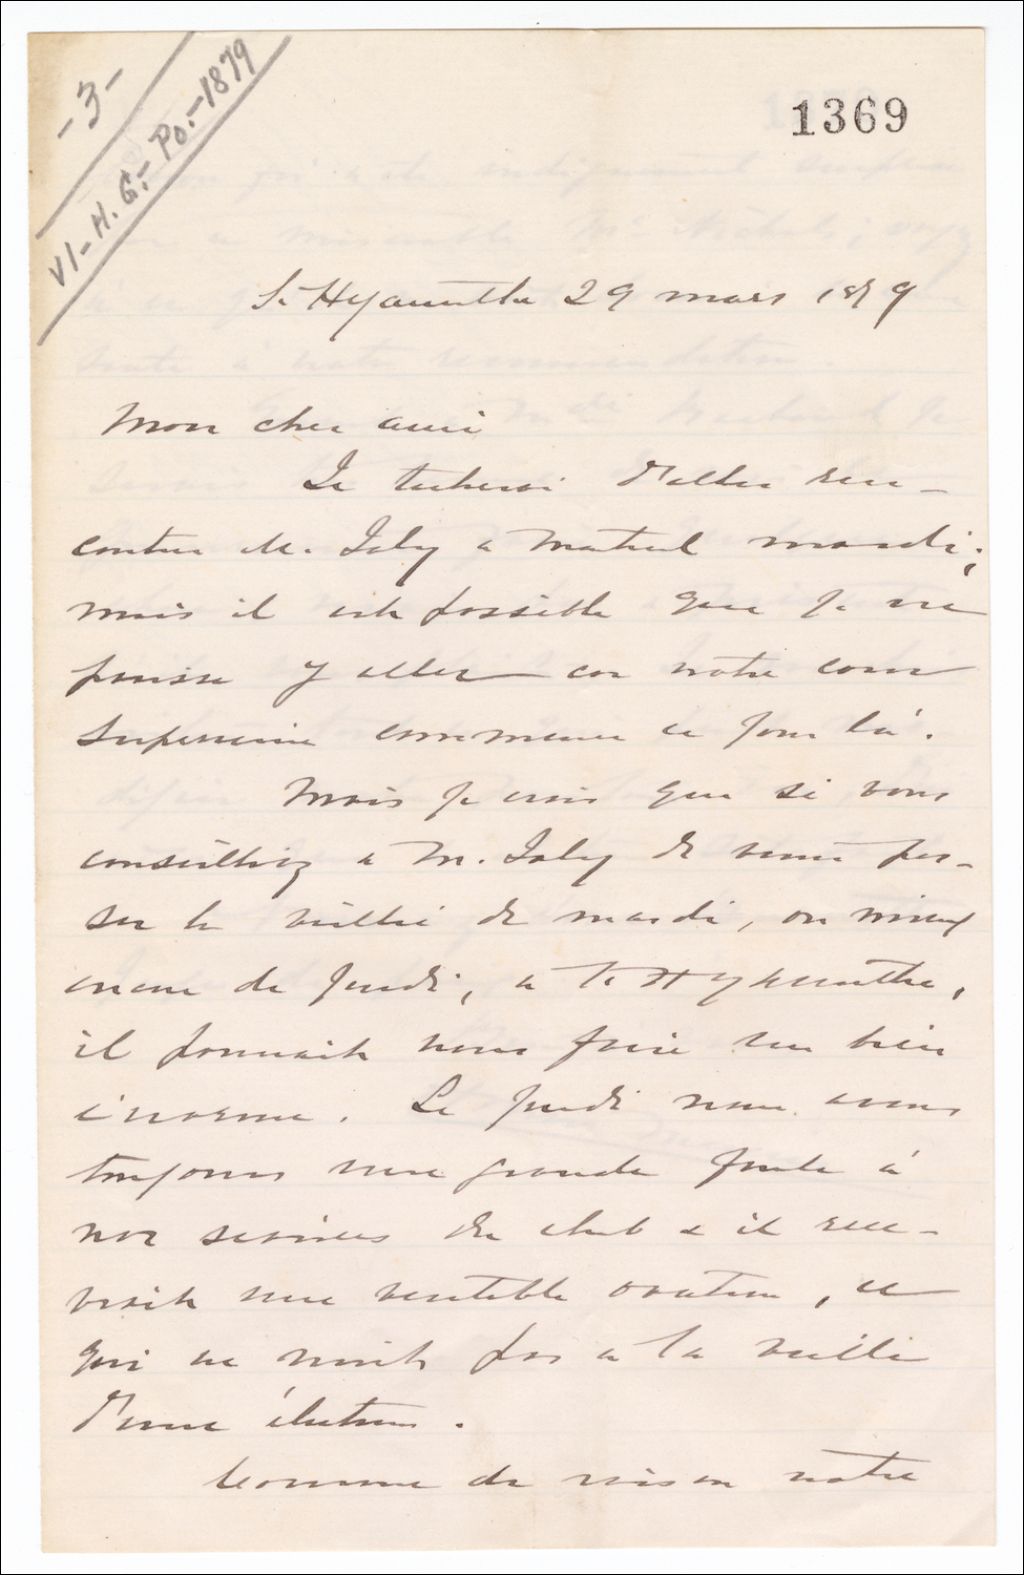 -3-
VI-H.G.-Po.-1879
1369
St Hyacinthe 29 mars 1879
Mon cher ami
Je tacherai d'aller ren-
contrer M. Joly a Montreal mardi;
mais il est possible que je ne
puisse y aller car notre cour
superieure commence ce jour là.
Mais je crois que si vous
conseilliez a M. Joly de venir pas-
ser la veillée de mardi, ou mieux
encore de jeudi, a St Hyacinthe,
il pourrait nous faire un bien
énorme. Le jeudi nous avons
toujours une grande foule à
nos séances du club & il rece-
vrait une veritable ovation, ce
qui ne nuit pas a la veille
d'une élection.
Comme de raison notre